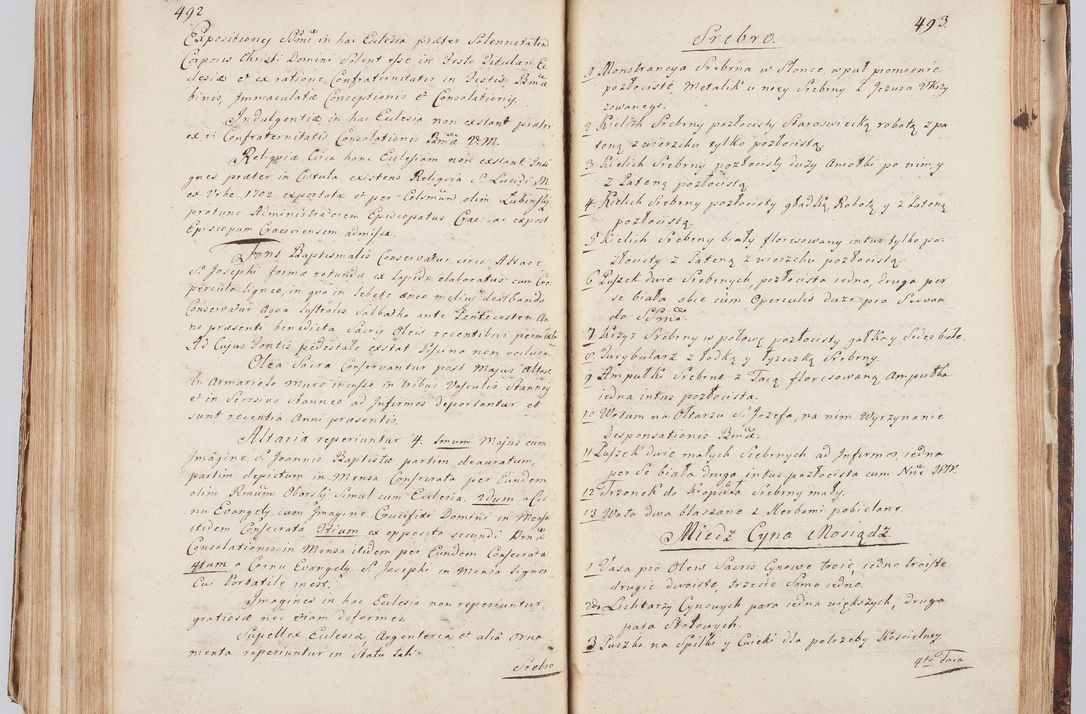 492
Expositiones SSmi in hac Ecclesia præter Solennitatem
Corporis Christi Domini Solent esse in Festo Titulari Ec
clesiæ et ex ratione Confraternitatis in Festis Bmæ
binis, Immaculatæ Conceptionis et Consolationis.
Indulgentiæ in hac Ecclesia non extant præter
ex vi Confraternitatis Consolationis Bmæ V. M.
Reliquiæ Circa hanc Ecclesiam non exstant Insi
gnes præter in Cistula existens Reliquia S. Lucidi M.
ex Urbe 1702 exportata et per Celsmum olim Lubinski
protunc Administratorem Episcopatus Crac: ac expost
Episcopum Cracoviensem admissa.
Fons Baptismalis Conservatur circa Altare
S. Josephi forma rotunda ex Lapide elaboratus cum Co
perculo Ligneo, in quo in Lebete æneo melius dealbando
Conservatur Aqua Lustralis Sabbatho ante Pentecosten An
no præsenti benedicta Sacris Oleis recentibus permixta
Ad Cujus Fontis pedestale exstat Piscina non occlusa.
Olea Sacra Conservantur post Majus Altare
in Armariolo muro inciso in tribus Vasculis Stanneis
et in Seorsivo Stanneo ad Infirmos deportantur et
sunt recentia Anni præsentis.
Altaria reperiuntur 4. 1mum Majus cum
Imagine S. Joannis Baptistæ partim deauratum,
partim depictum in Mensa Consecrata per Eundem
olim Rmum Oborski Simul cum Ecclesia. 2dum a Cor
nu Evangely cum Imagine Crucifixi Domini in Mensa
itidem Consecrata 3tium ex opposito secundi Bmæ
Consolationis in Mensa itidem per Eundem Consecrata
4tum a Cornu Evangely S. Josephi in Mensa lignea
Cui Portatile inest.
Imagines in hac Ecclesia non reperiuntur
gratiosæ nec etiam deformes.
Supellex Ecclesiæ Argenteria et alia Orna
menta reperiuntur in Statu tali.
Srebro
493
Srebro.
1 Monstrancya Srebrna w Słońce, w puł promienie
pozłociste Metalik u nozy Srebrny P. Jezusa Ukrzy
zowanego.
2 Kielich Srebrny pozłocisty Staroswiecką robotą z pa
teną z wierzchu tylko pozłocistą.
3 Kielich Srebrny pozłocisty duży Aniołki po nim y
z Pateną pozłocistą.
4 Kielich Srebrny pozłocisty gładką Robotą y z Pateną
pozłocistą.
5 Kielich Srebrny biały floresowany intus tylko po-
złocisty z Pateną z wierzchu pozłocistą.
6 Puszek dwie Srebrnych, pozłocista iedna, druga per
se biała obie cum Operculis duże pro Servan
do SSmo.
7 Krzyz Srebrny w połowę pozłocisty gałka y Sedes białe.
8 Turybularz z łodką y łyzeczką Srebrny.
9 Ampułki Srebrne z Tacą floresowaną Ampułka
iedna intus pozłocista.
10 Wotum na Ołtarzu S. Jozefa, na nim Wyrzynanie
Desponsationis Bmæ.
11 Puszek dwie małych Srebrnych ad Infirmos, iedna
per Se biała druga intus pozłocista cum Nrie WW.
12 Trzonek do Kropidła Srebrny mały.
13 Wota dwa blaszane z Herbami pobielane.
Miedz Cyna Mosiądz
1 Vasa pro Oleis Sacris Cynowe troie, iedno troiste
drugie dwoiste, trzecie Samo iedno.
2do Lichtarzy Cynowych para iedna większych, druga
para Stołowych.
3 Puszka na Spilki y Cwieki dla potrzeby Koscielney.
4to Taca